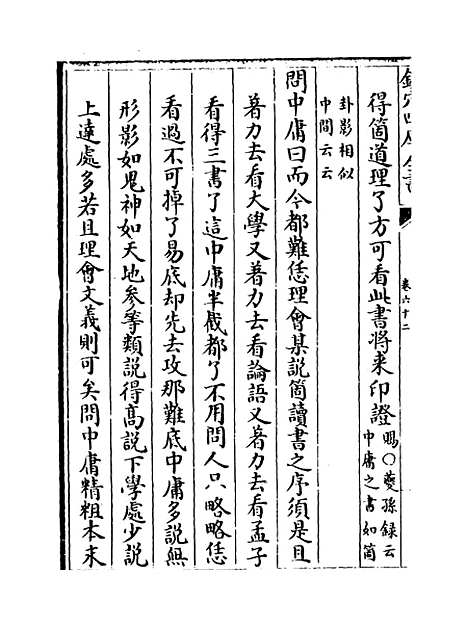 欽定四庫全書
卷六十二
得箇道理了方可看此書將來印證賜○夔孫録云中庸之書如箇
卦影相似中間云云
問中庸曰而今都難恁理會某說箇讀書之序須是且
著力去看大學又著力去看論語又著力去看孟子
看得三書了這中庸半截都了不用問人只略略恁
看過不可掉了易底却先去攻那難底中庸多說無
形影如鬼神如天地參等類說得高說下學處少說
上達處多若且理會文義則可矣問中庸精粗本末